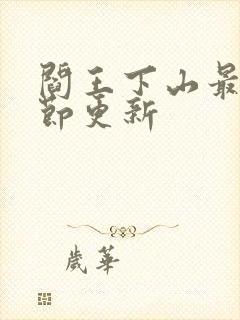 閻王下山最
節更新
歲華